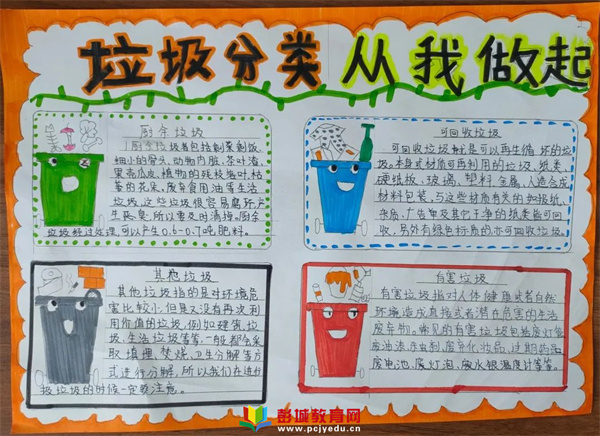 垃圾分类 从我做起
厨余垃圾
厨余垃圾是包括剩菜剩饭
细小的骨头、动物内脏、茶叶渣、
果壳瓜皮、植物的残枝落叶、枯
萎的花朵、废弃食用油等生活
垃圾,这些垃圾很容易腐坏,产
生恶臭,所以需及时清掉,厨余
垃圾经过处理,可以产生0.6-0.7吨肥料。
可回收垃圾
可回收垃圾就是可以再生循环的垃
圾。本身或材质可再利用的垃圾,纸类
硬纸板、玻璃、塑料、金属、人造合成
材料包装,与这些材质有关的如报纸、
杂质、广告单及其它干净的纸类皆可回
收,另外有绿色标质的亦可回收垃圾。
其他垃圾
其他垃圾指的是对环境危
害比较小,但是又没有再次利
用价值的垃圾,例如砖蛋、垃
圾、生活垃圾等等,一般都会采
取填埋、焚烧、卫生分解等方
式进行分解,所以我们在进行
投垃圾的时候一定要注意。
有害垃圾
有害垃圾指对人体健康或者自然
环境造成直接或者潜在危害的生活
废弃物。常见的有害垃圾包括废灯管
废油漆、杀虫剂、废弃化妆品、过期药品
废电池、废灯泡、废水银温度计等等。
彭城教育网
www.pcjyedu.cn